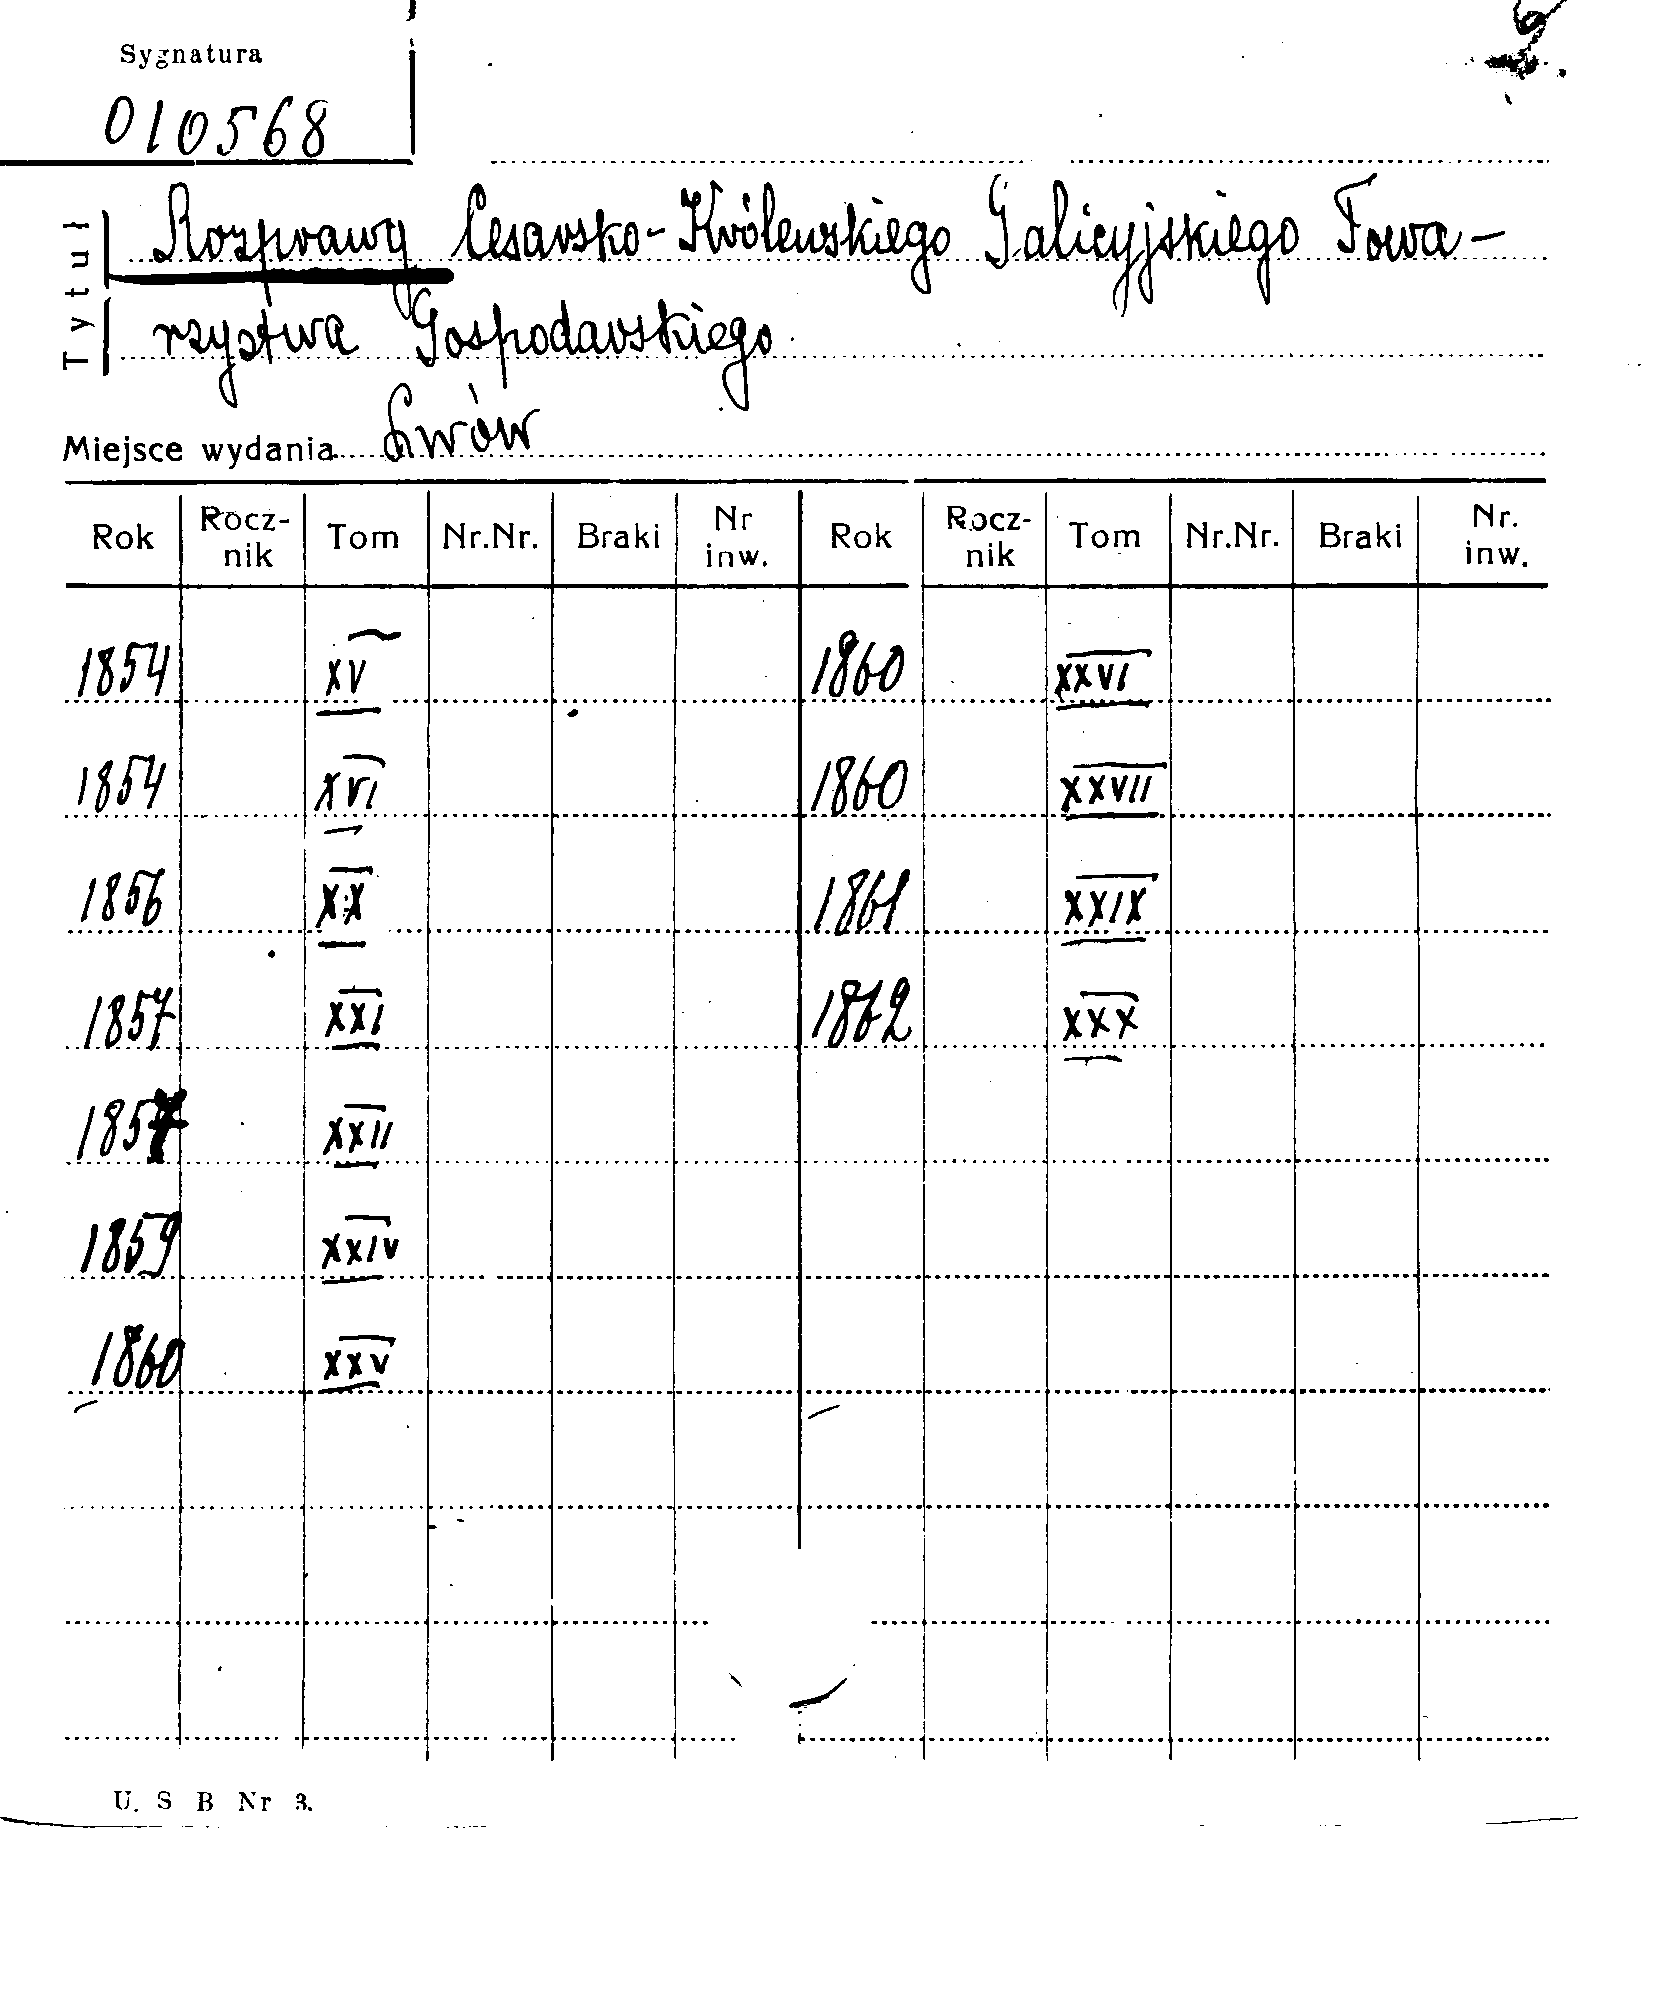 Sygnatura
010568
Tytuł
Rozprawy Cesarsko-Królewskiego Galicyjskiego Towa-
rzystwa Gospodarskiego
Miejsce wydania Lwów
Rok Rocz-nik Tom Nr.Nr. Braki Nr inw. Rok Rocz-nik Tom Nr.Nr. Braki Nr. inw.
1854 XV 1860 XXVI
1854 XVI 1860 XXVII
1856 XX 1861 XXIX
1857 XXI 1862 XXX
1857 XXII
1859 XXIV
1860 XXV
U. S B Nr 3.